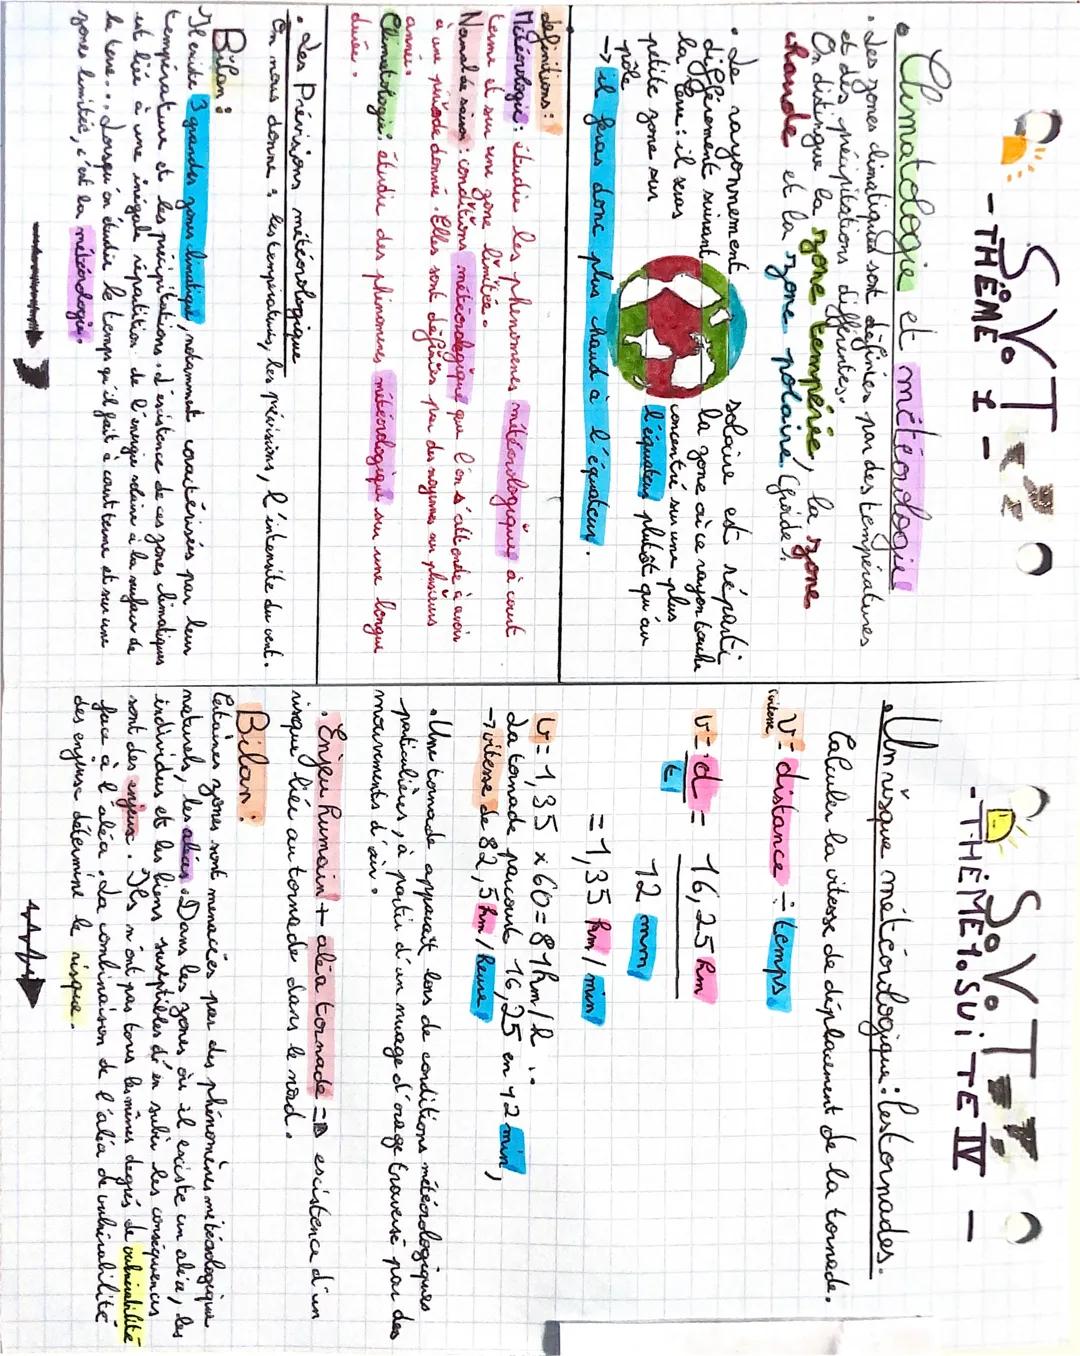 S.V.T
- THÈME 1 -
• Climatologie et météorologie
• Les zones climatiques sont définies par des températures
et des précipitations différentes.
On distingue la zone tempérée, la zone
chaude et la zone polaire (froide).
• Le rayonnement solaire est réparti
différement suivant la zone où ce rayon touche
la Terre : il seras concentré sur une plus
petite zone sur l'équateur plutôt qu'au
pôle
→ il feras donc plus chaud à l'équateur.
définitions :
Météorologie : étudie les phénomènes météorologiques à court
terme et sur une zone limitée.
Normale de saison : conditions météorologique que l'on s'attende à avoir
à une période donné. Elles sont définies par des moyennes sur plusieurs
années.
Climatologie : étudie des phénomènes météorologique sur une longue
durée.
• Les Prévisions météorologique
On nous donne : les températures, les prévisions, l'intensité du vent.
Bilan :
Il existe 3 grandes zones climatique, notamment caractérisées par leur
température et les précipitations. L'existence de ces zones climatiques
est liée à une inégale répartition de l'énergie solaire à la surface de
la terre... Lorsqu'on étudie le temps qu'il fait à court terme et sur une
zones limitée, c'est la météorologie.
S.V.T
- THÈME 1. SUITE IV -
• Un risque météorologique : les tornades.
Calculer la vitesse de déplacement de la tornade.
V = distance ÷ temps
vitesse
V = d/t = 16,25 km / 12 min
= 1,35 km / min
V = 1,35 x 60 = 81 km / h
La tornade parcourt 16,25 en 12 min,
→ vitesse de 82,5 km / heure
• Une tornade apparait lors de conditions météorologiques
particulières, à partir d'un nuage d'orage traversé par des
mouvements d'air.
• Enjeu humain + aléa tornade => existence d'un
risque liée au tornade dans le nord.
Bilan :
Certaines zones sont menacées par des phénomènes météorologique
naturels, les aléas. Dans les zones où il existe un aléa, les
individus et les biens susceptibles d'en subir les conséquences
sont des enjeux. Ils n'ont pas tous les mêmes degrés de vulnérabilité
face à l'aléa. La combinaison de l'aléa de vulnérabilité
des enjeux détermine le risque.